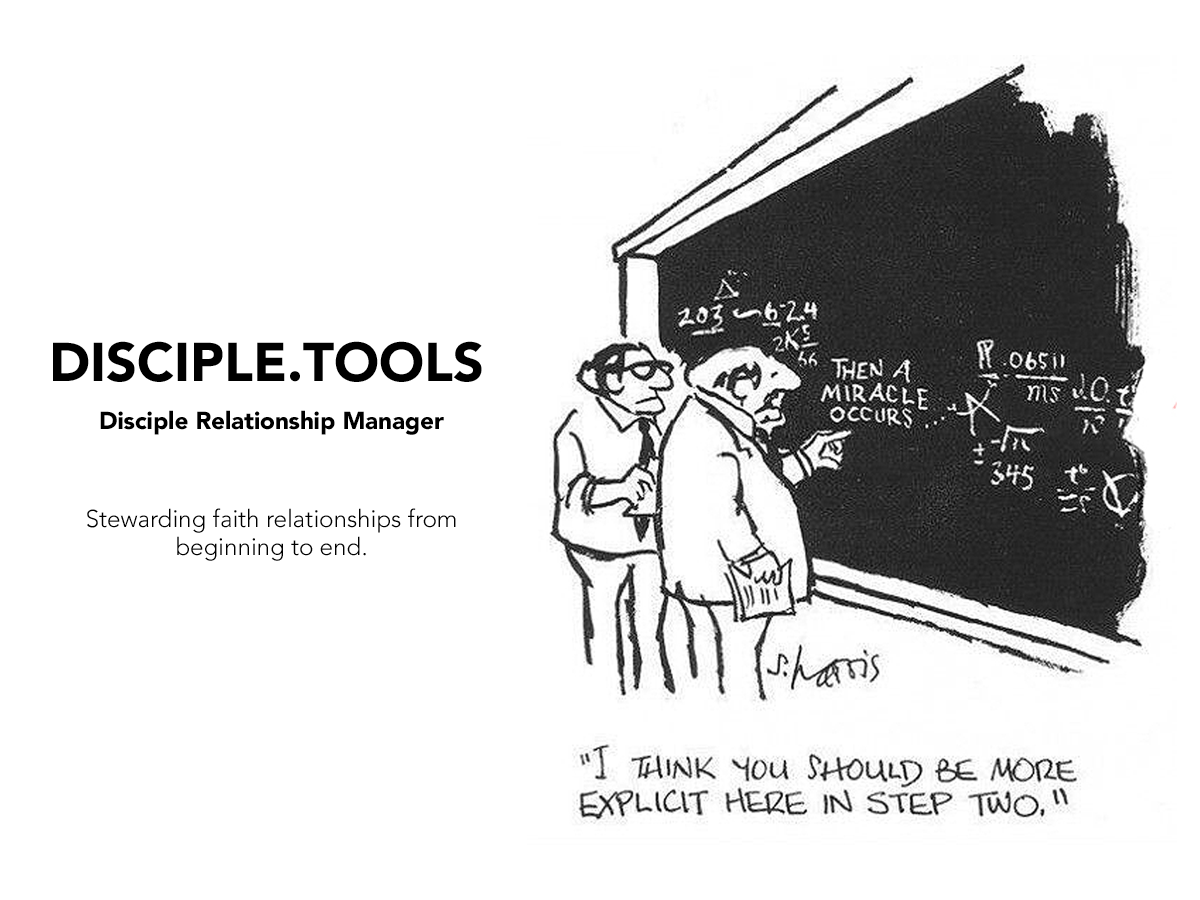 DISCIPLE.TOOLS
Disciple Relationship Manager
Stewarding faith relationships from
beginning to end.
203 6-24
2K5
THEN A
MIRACLE
OCCURS...
.06511
ms
345
S. Harris
"I THINK YOU SHOULD BE MORE
EXPLICIT HERE IN STEP TWO."